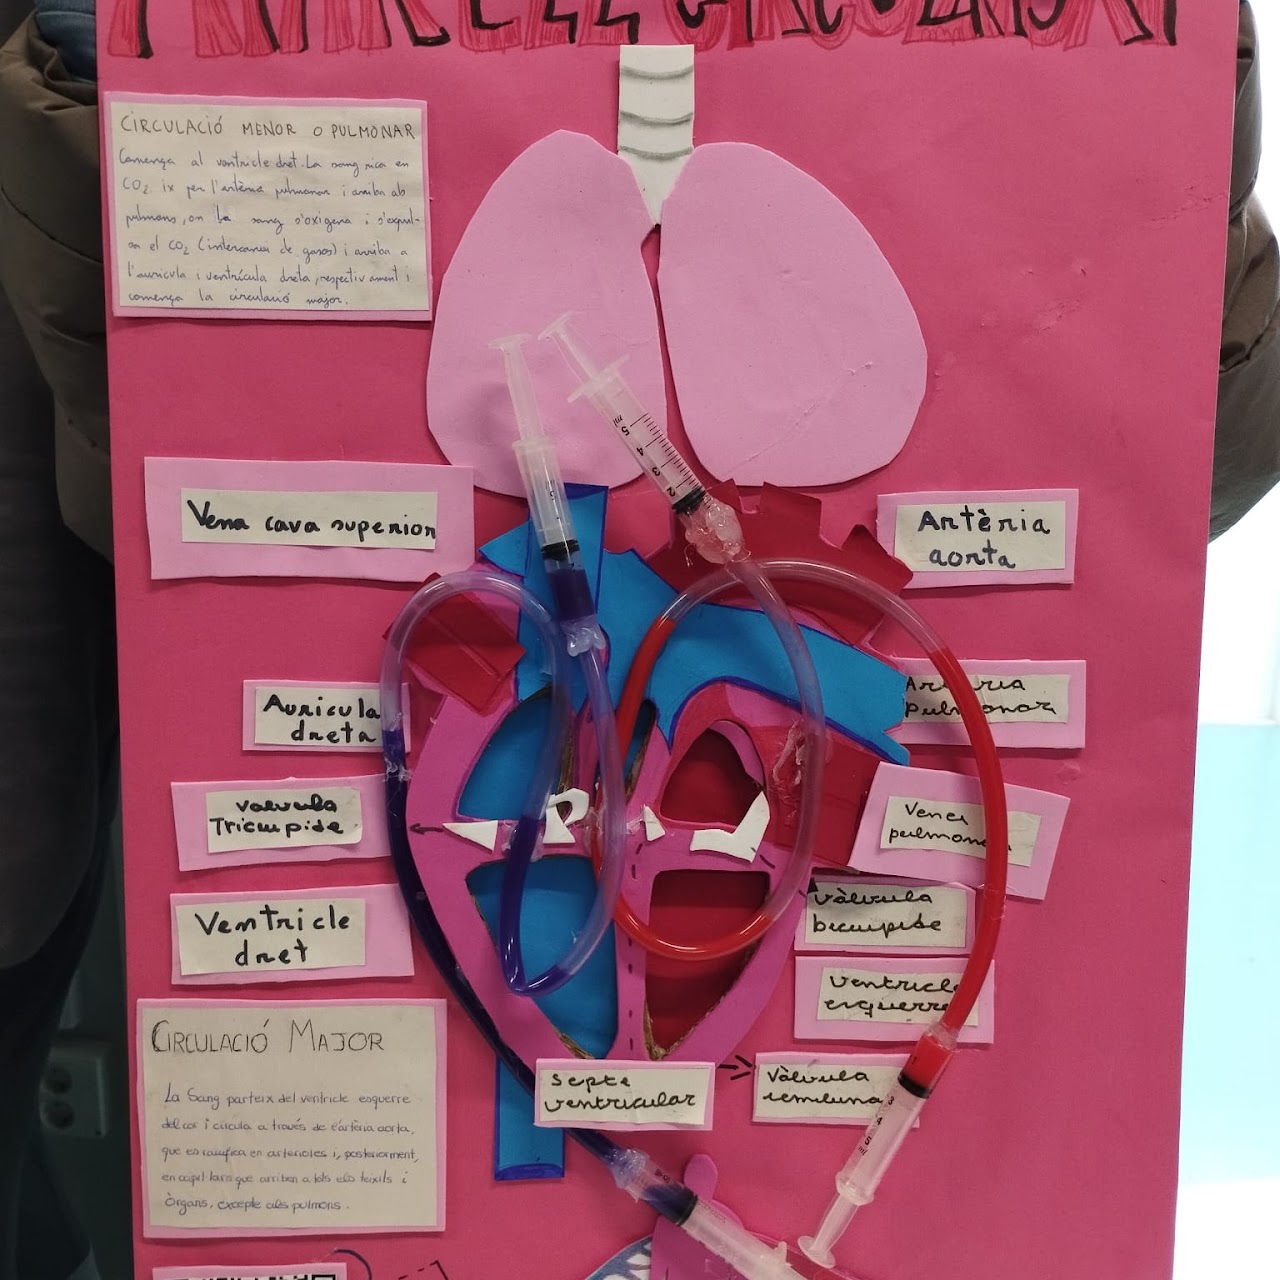 APARELL CIRCULATORI
CIRCULACIÓ MENOR O PULMONAR
Comença al ventricle dret. La sang rica en
CO2 ix per l'artèria pulmonar i arriba als
pulmons, on la sang s'oxigena i s'expul-
sa el CO2 (intercanvi de gasos) i arriba a
l'aurícula i ventrícula dreta, respectivament i
comença la circulació major.
Vena cava superior
Artèria
aorta
Aurícula
dreta
Artèria
pulmonar
Valvula
Tricuspide
Venes
pulmonars
Ventricle
dret
Vàlvula
bicuspide
Ventricle
esquerre
CIRCULACIÓ MAJOR
La Sang parteix del ventricle esquerre
del cor i circula a través de l'artèria aorta,
que es ramifica en arterioles i, posteriorment,
en capil·lars que arriben a tots els teixits i
òrgans, excepte als pulmons.
Septe
ventricular
Vàlvula
semiluna
ml 5 4 3 2
3 4 5 ml